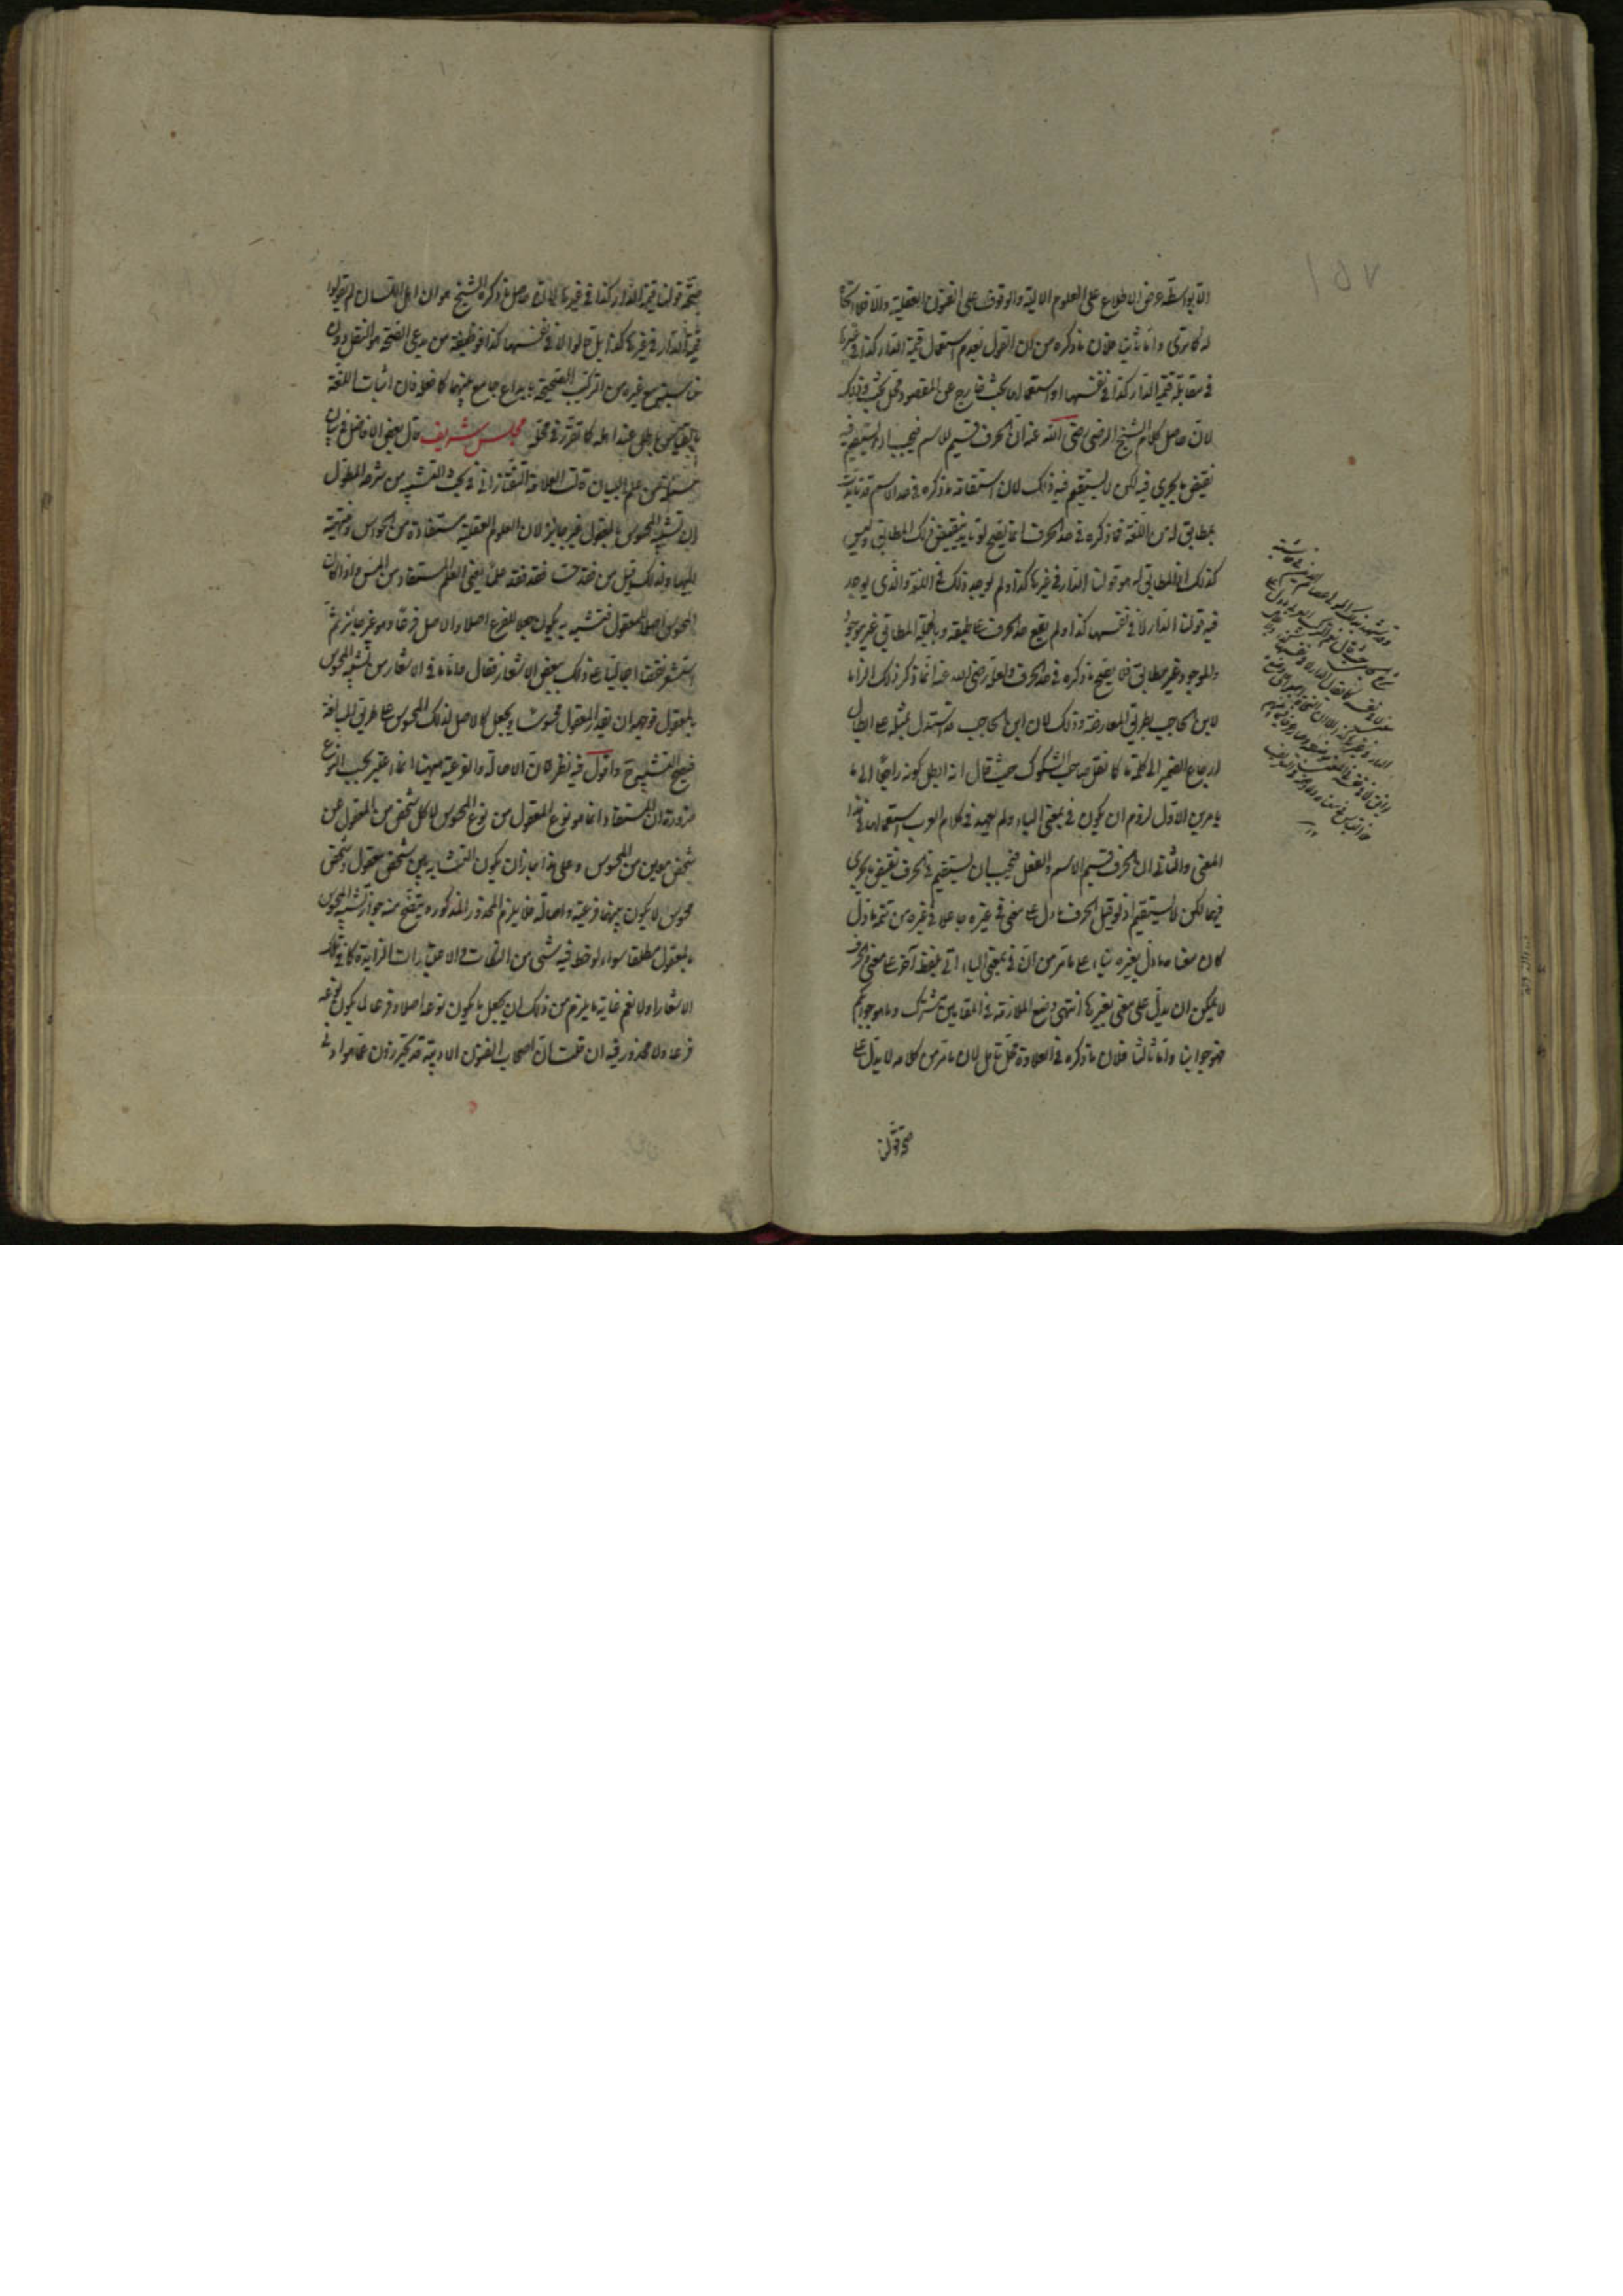 الا بواسطة عرض الاطلاع على العلوم الالية والوقوف على الفنون العقلية والا فلا اتجاه
له كما ترى واما ثانيا فلان ما ذكره من ان القول بعدم استعمال قيمة الدار كذا في غيرها
في مقابلة قيمة الدار كذا في نفسها او استعمالها بحث خارج عن المقصود محل بحث وذلك
لان حاصل كلام الشيخ الرضي رضي الله عنه ان الحرف قسيم للاسم فيجب ان يستقيم فيه
نقيض ما يجري فيه لكن لا يستقيم فيه ذلك لان استقامة ما ذكره في حد الاسم قد تايدت
بمطابق له من اللغة فما ذكره في حد الحرف انما يصح لو تايد بنقيض ذلك المطابق وليس
كذلك اذ المطابق له هو قولنا الدار في غيرها كذا ولم يوجد ذلك في اللغة والذي يوجد
فيه قولنا الدار لا في نفسها كذا ولم يقع حد الحرف على طبقه وبالجملة المطابق غير موجود
والموجود غير مطابق فلا يصح ما ذكره في حد الحرف ولعله رضي الله عنه انما ذكر ذلك الزاما
لابن الحاجب بطريق المعارضة وذلك لان ابن الحاجب قد استدل بمثله على ابطال
ارجاع الضمير الى كلمة ما كما نقل صاحب الشكوك حيث قال انه ابطل كونه راجعا الى ما
بامرين الاول لزوم ان يكون في بمعنى الباء ولم يعهد في كلام العرب استعمالها في هذا
المعنى والثاني ان الحرف قسيم الاسم والفعل فيجب ان يستقيم في الحرف نقيض ما يجري
فيهما لكن لا يستقيم اذ لو قيل الحرف ما دل على معنى في غيره جاعلا في غيره من تتمة ما دل
كان معناه ما دل بغيره بناء على ما مر من ان في بمعنى الباء اتى بلفظ آخر على معنى الحرف
لا يمكن ان يدل على معنى بغيرها انتهى ومنع الملازمة في المقامين مشترك وما هو جوابكم
فهو جوابنا واما ثالثا فلان ما ذكره في العلاوة محل تامل لان ما مر من كلامه لا يدل على
صحة قولنا
صحة قولنا قيمة الدار كذا في غيرها لان حاصل ما ذكره الشيخ هو ان اهل اللسان لم يقولوا
قيمة الدار في غيرها كذا بل قالوا لا في نفسها كذا فوظيفة من يدعي الصحة هو النقل دون
غيره من التركيب الصحيحة بابداع جامع بينهما كما فعله فان اثبات اللغة
بالقياس باطل عند اهله كما تقرر في محله مجلس شريف قال بعض الافاضل في بيان
من علم البيان قال العلامة التفتازاني في بحث التشبيه من شرحه المطول
ان تشبيه المحسوس بالمعقول غير جائز لان العلوم العقلية مستفادة من الحواس ومنتهية
اليها ولذلك قيل من فقد حسا فقد فقد علما يعني العلم المستفاد من الحس واذا كان
المحسوس اصلا للمعقول فتشبيهه به يكون جعلا للفرع اصلا والاصل فرعا وهو غير جائز ثم
استشعر نقضا اجماليا على ذلك ببعض الاشعار فقال واما ما في الاشعار من تشبيه المحسوس
بالمعقول فوجهه ان يقدر المعقول محسوسا ويجعل كالاصل لذلك المحسوس على طريق المبالغة
فيصح التشبيه ح واقول فيه نظر لان الاصالة والفرعية ههنا انما اعتبر بحسب النوع
ضرورة ان المستفاد انما هو نوع المعقول من نوع المحسوس لا كل شخص من المعقول عن
شخص معين من المحسوس وعلى هذا جاز ان يكون التشابه بين شخص معقول وشخص
محسوس لا يكون بينهما فرعية واصالة فلا يلزم المحذور المذكور ويتضح منه جواز تشبيه المحسوس
بالمعقول مطلقا سواء لوحظ فيه شئ من النكات والاعتبارات الزايدة كما في تلك
الاشعار او لا نعم غاية ما يلزم من ذلك ان يجعل ما يكون نوعه اصلا وفرعا لما يكون نوعه
فرعا ولا محذور فيه ان قلت ان اصحاب الفنون الادبية قد يحترزون عما هو ادنى